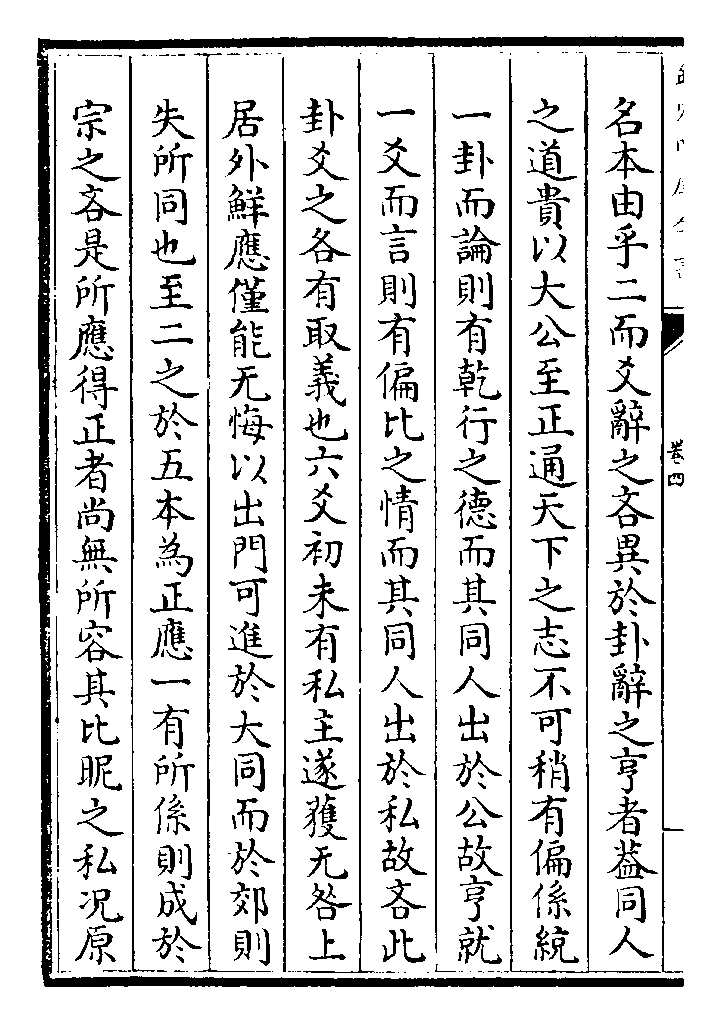 名本由乎二而爻辭之吝異於卦辭之亨者葢同人
之道貴以大公至正通天下之志不可稍有偏係統
一卦而論則有乾行之德而其同人出於公故亨就
一爻而言則有偏比之情而其同人出於私故吝此
卦爻之各有取義也六爻初未有私主遂獲无咎上
居外鮮應僅能无悔以出門可進於大同而於郊則
失所同也至二之於五本為正應一有所係則成於
宗之吝是所應得正者尚無所容其比昵之私况原
卷四